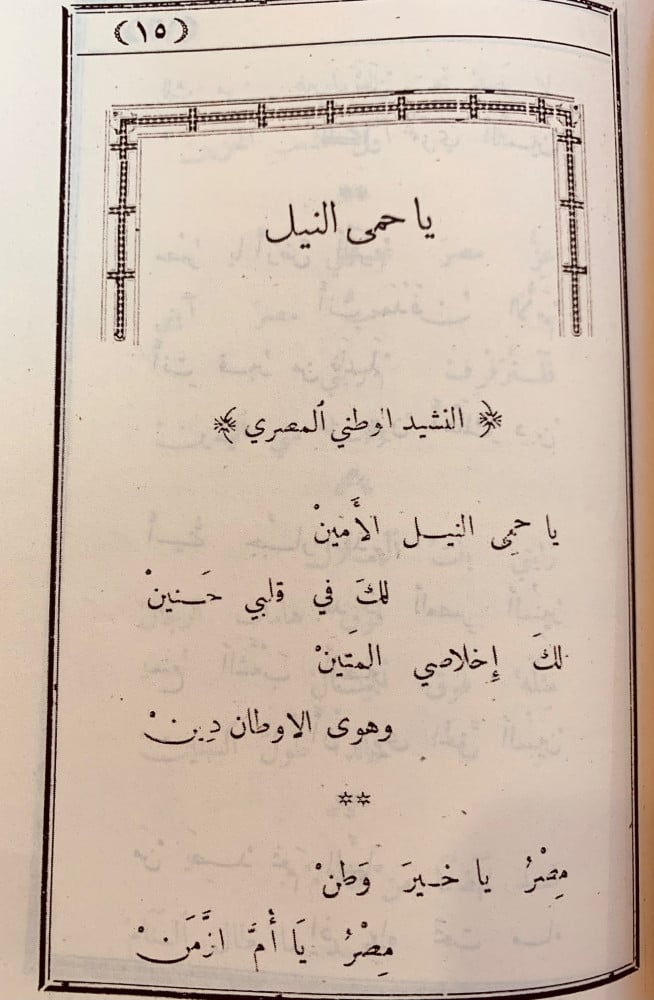 (١٥)
يا حمى النيل
﴿ النشيد الوطني ٱلمصري ﴾
يا حِمِى النيــل الأَمينْ
لكَ في قلبي حَــنينْ
لكَ إِخلاصي المَتينْ
وهوى الاوطان دِينْ
**
مِصْرُ يا خــيرَ وَطنْ
مِصْرُ يَا أُمَّ الزَّمَنْ